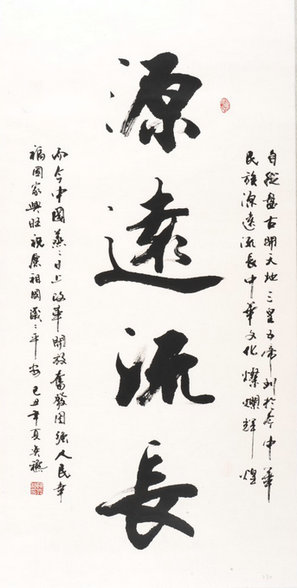 自從盤古開天地三皇五帝到於今中華
民族源遠流長中華文化燦爛輝煌
源遠流長
而今中國蒸々日上改革開放奮發圖強人民幸
福國家興旺祝願祖國歲々平安己丑年夏